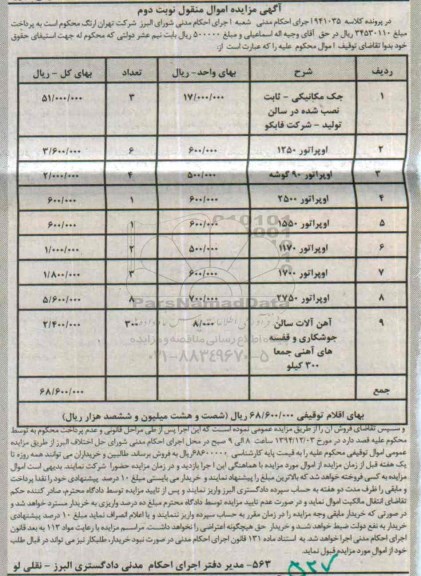 آگهی مزایده اموال منقول نوبت دوم
در پرونده کلاسه ۹۴۱۰۳۵ اجرای احکام مدنی شعبه ۱ اجرای احکام مدنی شورای البرز شرکت تهران ارنگ محکوم است به پرداخت
مبلغ ۳۴۵۳۰۱۱۰ ریال در حق آقای وجیه اله اسماعیلی و مبلغ ۵۰۰۰۰۰ ریال بابت نیم عشر دولتی که محکوم له جهت استیفای حقوق
خود بدوا تقاضای توقیف اموال محکوم علیه را که عبارت است از:
ردیف شرح بهای واحد- ریال تعداد بهای کل - ریال
۱ جک مکانیکی - ثابت نصب شده در سالن تولید - شرکت فابکو ۱۷/۰۰۰/۰۰۰ ۳ ۵۱/۰۰۰/۰۰۰
۲ اوپراتور ۱۲۵۰ ۶۰۰/۰۰۰ ۶ ۳/۶۰۰/۰۰۰
۳ اوپراتور ۹۰ گوشه ۵۰۰/۰۰۰ ۴ ۲/۰۰۰/۰۰۰
۴ اوپراتور ۲۵۰۰ ۶۰۰/۰۰۰ ۱ ۶۰۰/۰۰۰
۵ اوپراتور ۱۵۵۰ ۶۰۰/۰۰۰ ۱ ۶۰۰/۰۰۰
۶ اوپراتور ۱۱۷۰ ۵۰۰/۰۰۰ ۲ ۱/۰۰۰/۰۰۰
۷ اوپراتور ۱۷۰۰ ۶۰۰/۰۰۰ ۳ ۱/۸۰۰/۰۰۰
۸ اوپراتور ۲۷۵۰ ۷۰۰/۰۰۰ ۸ ۵/۶۰۰/۰۰۰
ParsNamadData
۹ آهن آلات سالن جوشکاری و قفسه های آهنی جمعا ۳۰۰ کیلو ۸/۰۰۰ ۳۰۰ ۲/۴۰۰/۰۰۰
۰۲۱-۸۸۳۴۹۶۷۰-۵
جمع ۶۸/۶۰۰/۰۰۰
بهای اقلام توقیفی ۶۸/۶۰۰/۰۰۰ ریال (شصت و هشت میلیون و ششصد هزار ریال)
و سپس تقاضای فروش آن را از طریق مزایده عمومی نموده است که این اجرا پس از طی مراحل قانونی و عدم پرداخت محکوم به توسط
محکوم علیه قصد دارد در مورخ ۱۳۹۴/۱۲/۰۳ ساعت ۸ الی ۹ صبح در محل اجرای احکام مدنی شورای حل اختلاف البرز از طریق مزایده
عمومی اموال توقیفی محکوم علیه را به قیمت پایه کارشناسی ۶۸۶۰۰۰۰۰ ریال به فروش برساند. طالبین و خریداران می توانند همه روزه تا
یک هفته قبل از زمان مزایده از اموال مورد مزایده با هماهنگی این اجرا بازدید و در زمان مزایده حضورا شرکت نمایند. بدیهی است اموال
مزایده به کسی فروخته خواهد شد که بالاترین مبلغ را پیشنهاد نمایند و خریدار می بایستی مبلغ ۱۰ درصد پیشنهادی خود را نقدا پرداخت
و مابقی را ظرف دو هفته به حساب سپرده دادگستری البرز واریز نمایند و پس از تایید مزایده توسط دادگاه محترم، صادر کننده حکم
تقاضای انتقال مالکیت اموال نماید و در صورت عدم تایید مزایده توسط دادگاه محترم مبلغ ده درصد واریزی به خریدار مسترد خواهد شد و
در صورتی که خریدار مابقی وجه مزایده را در زمان مقرر به حساب سپرده واریز ننمایند و یا اعلام انصراف نماید مبلغ ۱۰ درصد پیشنهادی
خریدار به نفع دولت ضبط خواهد شد و خریدار حق هیچگونه اعتراضی را نخواهد داشت. مراسم مزایده با رعایت مواد ۱۱۳ به بعد قانون
اجرای احکام مدنی اجرا خواهد شد. به استناد ماده ۱۳۱ قانون اجرای احکام مدنی در صورت نبود خریدار، طلبکار نیز می تواند در قبال طلب
خود از اموال مورد مزایده قبول نماید.
۵۶۳- مدیر دفتر اجرای احکام مدنی دادگستری البرز - نقلی لو